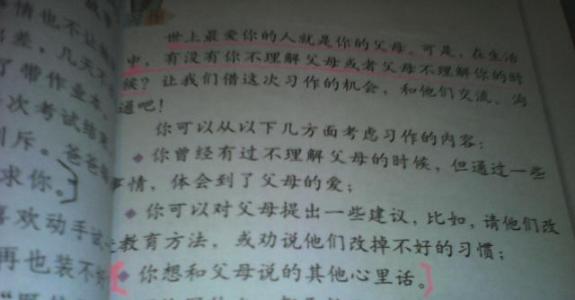 情也不让
世上最爱你的人就是你的父母。可是，在生活
差，几天
中，有没有你不理解父母或者父母不理解你的时
了带作业本
候？让我们借这次习作的机会，和他们交流、沟
次考试结束
通吧！
斥。爸爸
你可以从以下几方面考虑习作的内容：
求你。
◆你曾经有过不理解父母的时候，但通过一些
事情，体会到了父母的爱；
喜欢动手
◆你可以对父母提出一些建议，比如，请他们改
教育方法，或劝说他们改掉不好的习惯；
再也装不
◆你想和父母说的其他心里话。